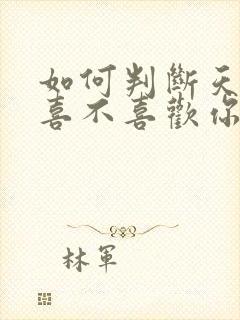 如何判斷天
喜不喜歡你
林軍